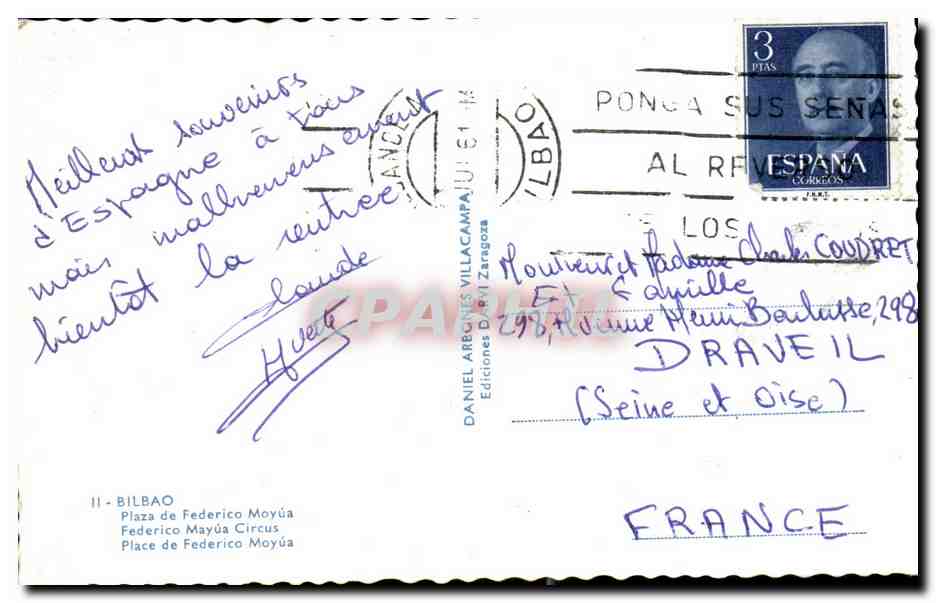 Meilleurs souvenirs
d'Espagne à tous
mais malheureusement
bientôt la rentrée
Claude
Yvette
II - BILBAO
Plaza de Federico Moyúa
Federico Mayúa Circus
Place de Federico Moyúa
DANIEL ARBONES VILLACAMPA
Ediciones DARVI Zaragoza
3
PTAS
ESPAÑA
CORREOS
F.N.M.T.
BILBAO
PONGA SUS SEÑAS
AL REVERSO
LOS
Monsieur et Madame Charles COUDRET
Et Famille
298, Avenue Henri Barbusse, 298
DRAVEIL
(Seine et Oise)
FRANCE
CPARAMA